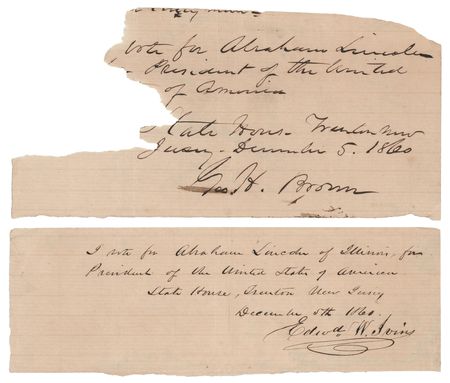 vote for Abraham Lincoln
President of the United
of America
State House Trenton New
Jersey - December 5. 1860
Geo. H. Brown
I vote for Abraham Lincoln of Illinois, for
President of the United States of America
State House, Trenton New Jersey
December 5th 1860.
Edwd W. Ivins